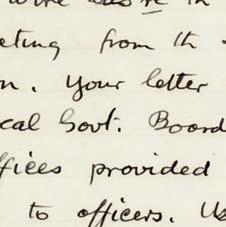 eting from th
n. Your letter
cal Govt. Board
ffices provided
to officers. Us